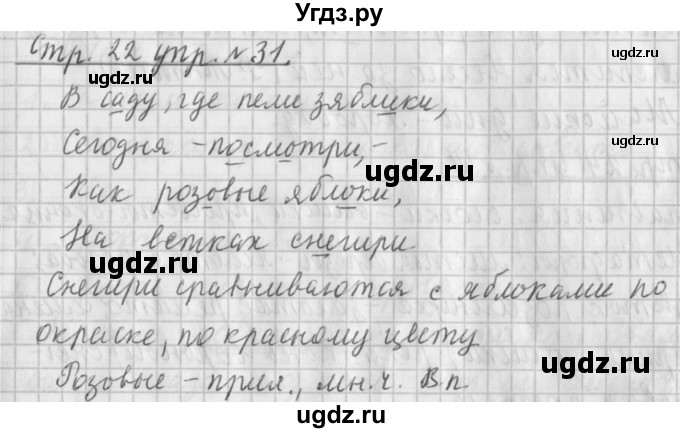 Угдз.ру
Стр. 22 упр. №31.
ugdz.ru
ugdz.ru
В саду, где пели зяблики,
Сегодня - посмотри, -
ugdz.ru
ugdz.ru
Как розовые яблоки,
ugdz.ru
На ветках снегири
ugdz.ru
Снегири сравниваются с яблоками по
окраске, по красному цвету
ugdz.ru
ugdz.ru
Розовые - прил., мн.ч. В.п.
ugdz.ru